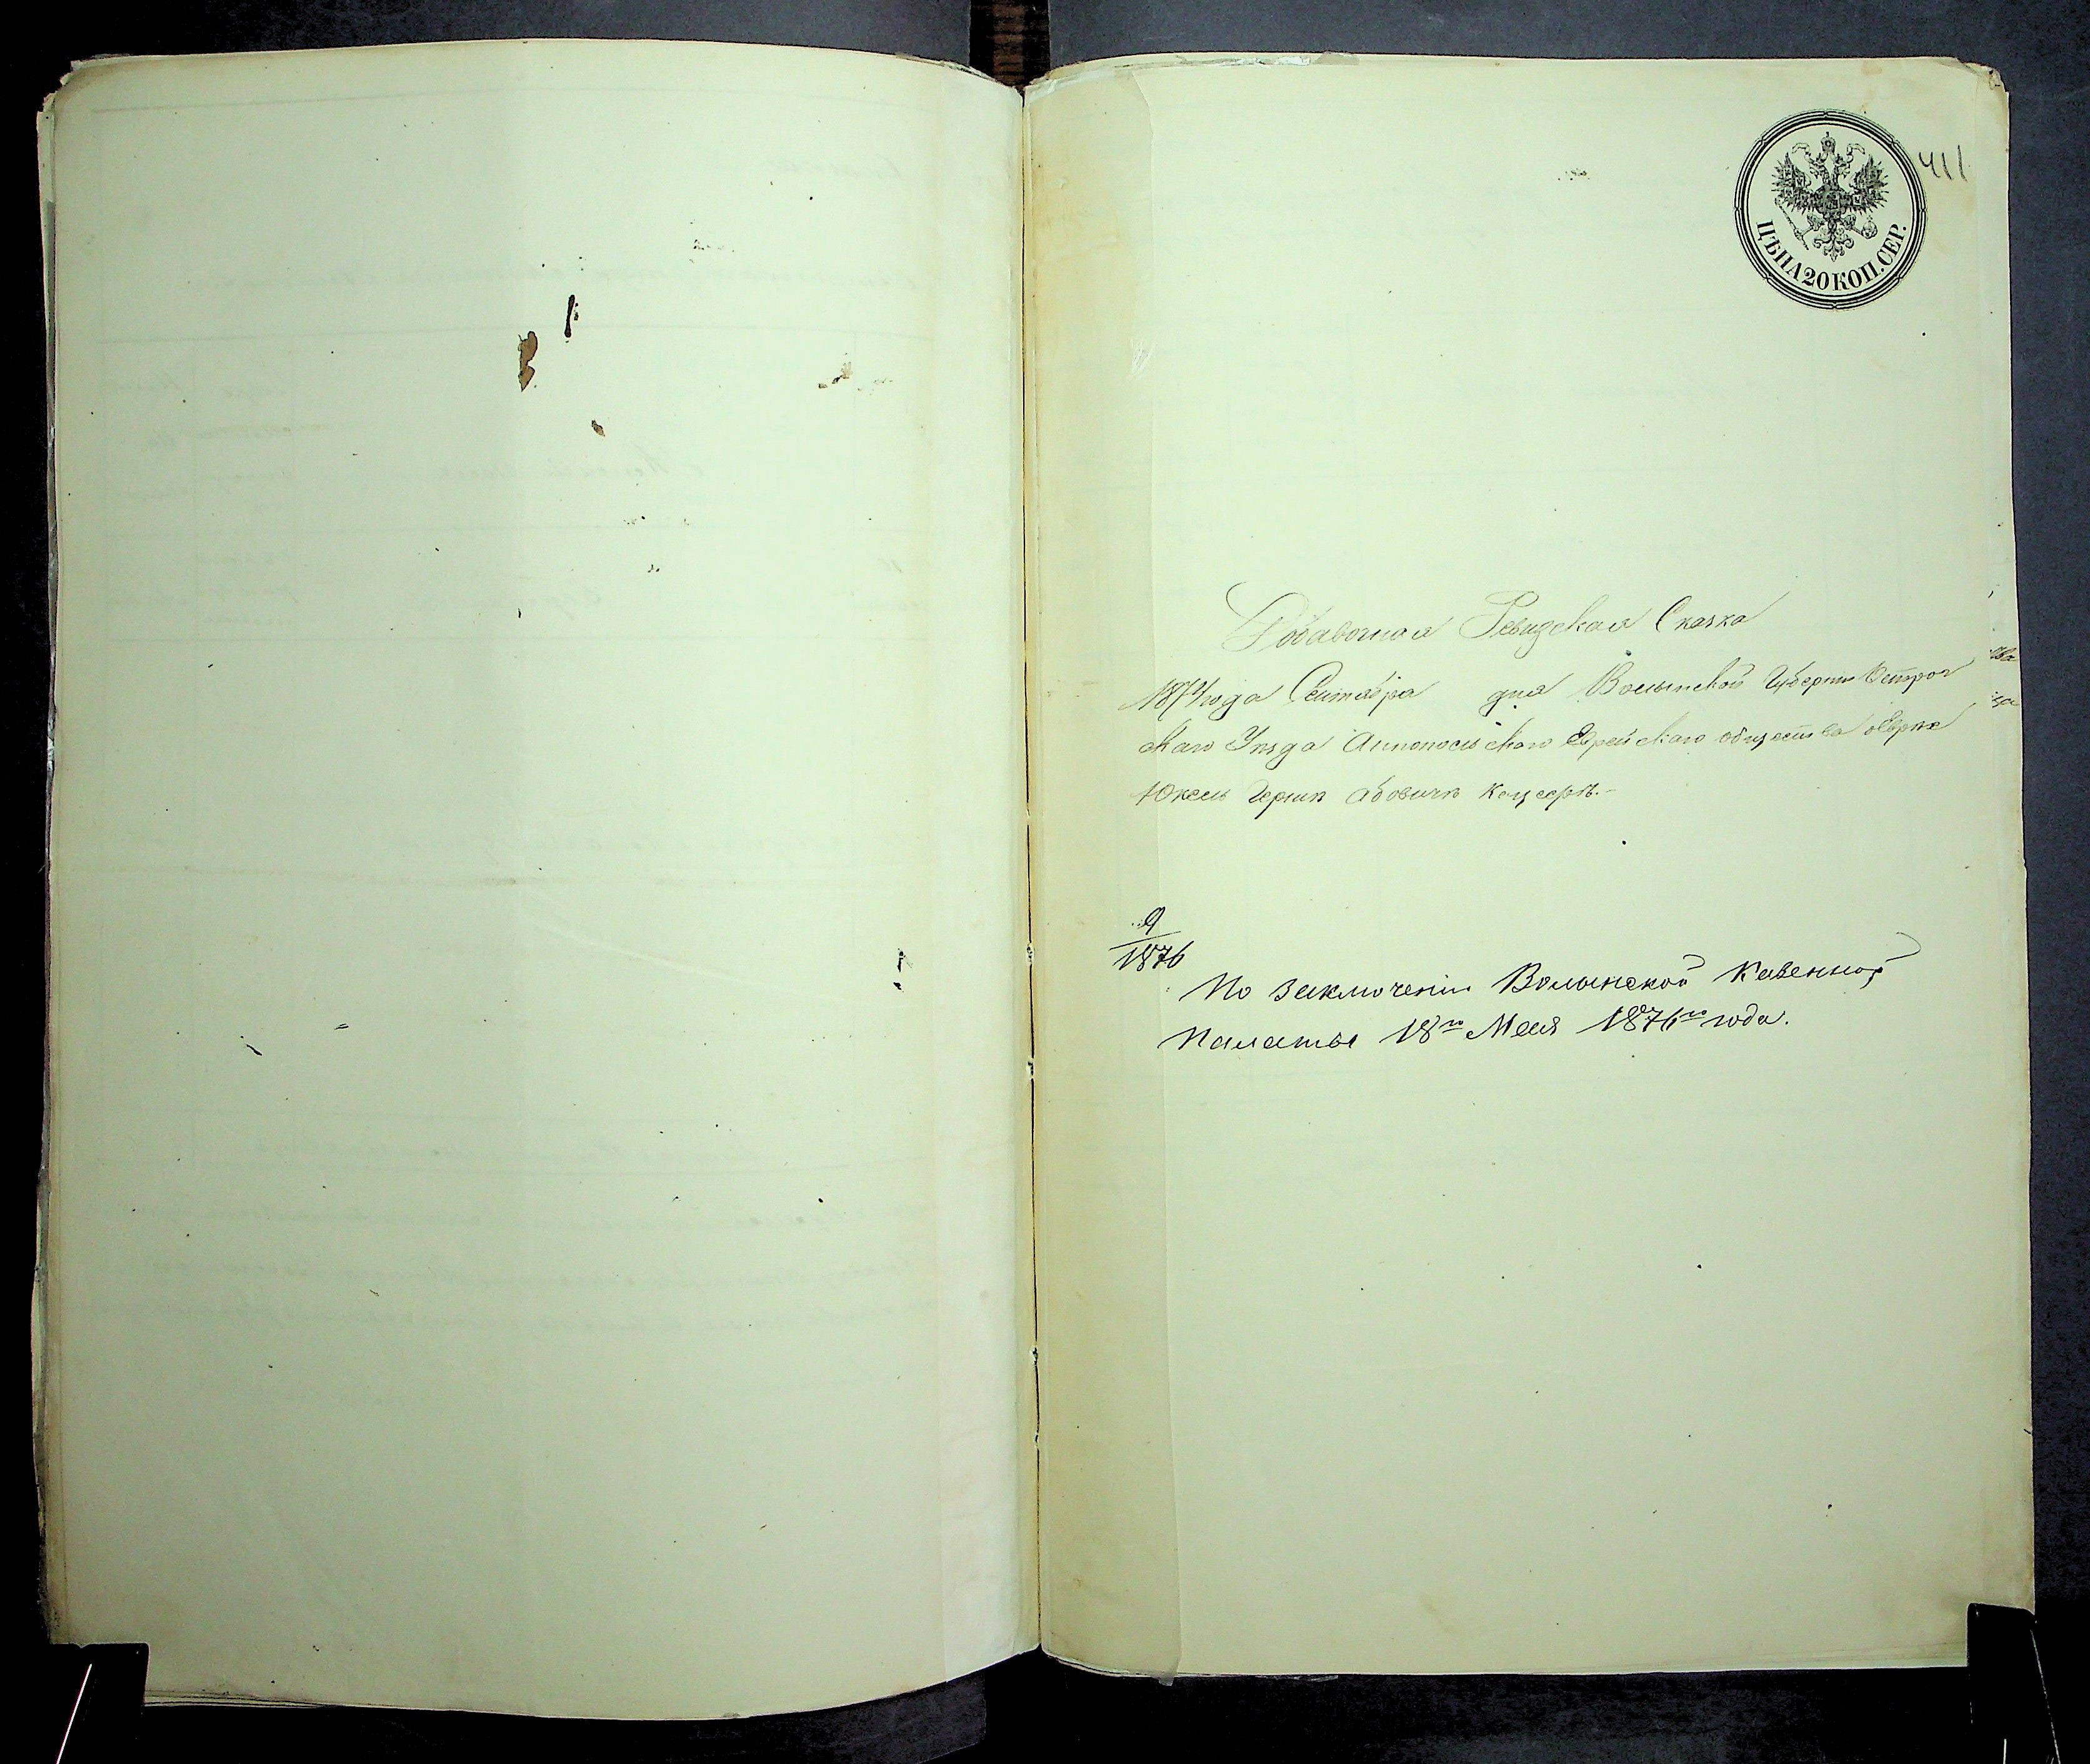 411
ЦѢНА 20 КОП. СЕР.
Добавочная Ревидская Сказка
187 года Сентября дня Волынской Губернии Острог
скаго Уѣзда Аннопольскаго Еврейскаго общества
Герш Абовичъ
9
1876
По заключенію Волынской Казенной
Палаты 18го Мая 1876го года.